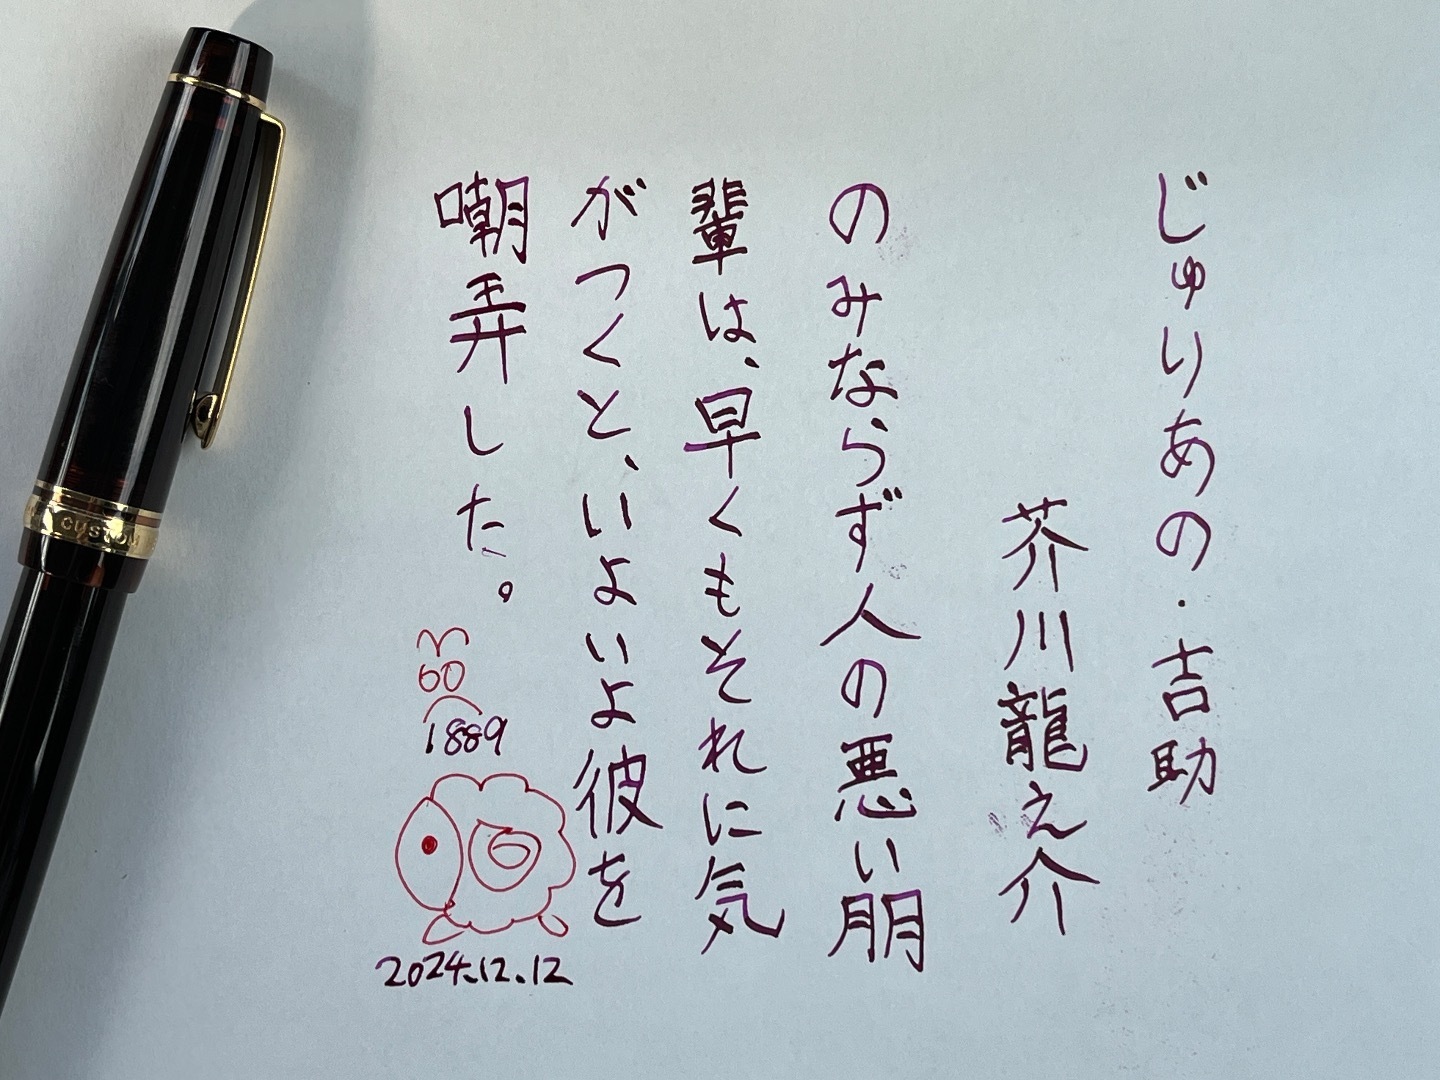 じゅりあの・吉助
芥川龍之介
のみならず人の悪い朋
輩は、早くもそれに気
がつくと、いよいよ彼を
嘲弄した。
60
1889
2024.12.12
CUSTOM